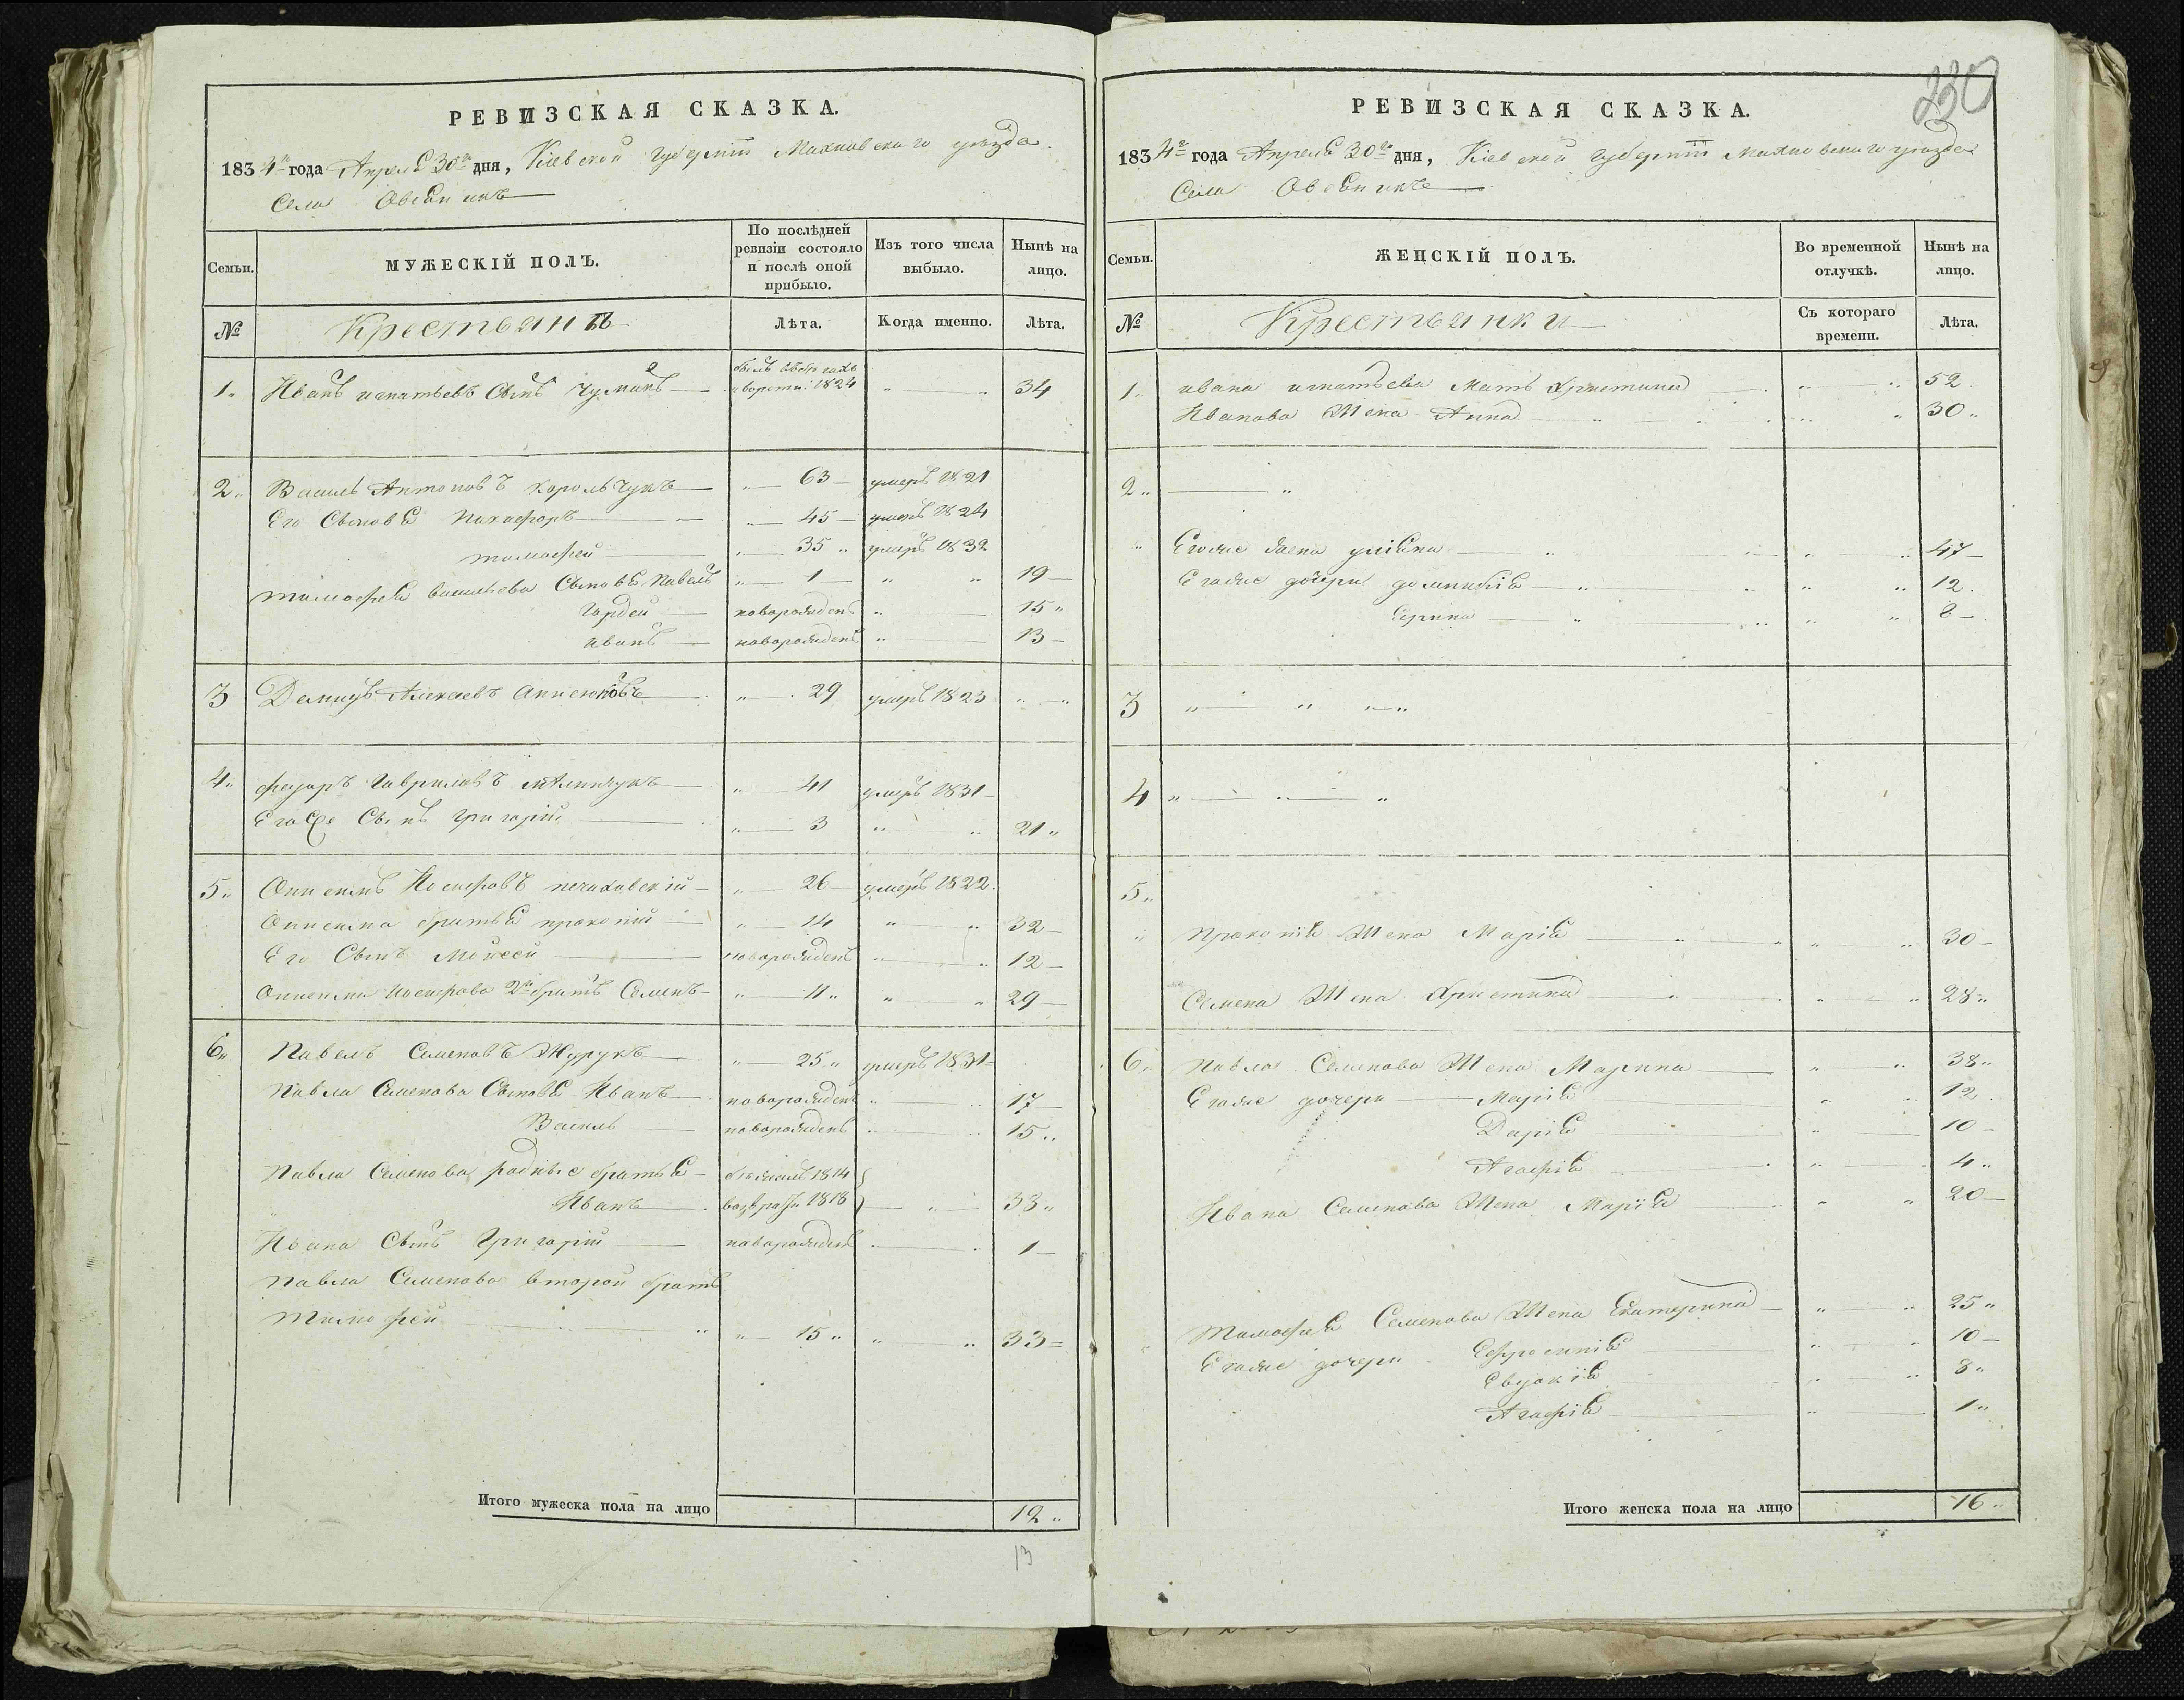 РЕВИЗСКАЯ СКАЗКА.
1834го года Апреля 30го дня, Кіевской губерніи Махновскаго уезда
Села Овсяникъ
Семьи. МУЖЕСКІЙ ПОЛЪ. По послѣдней ревизіи состояло и послѣ оной прибыло. Изъ того числа выбыло. Нынѣ на лицо.
№ Крестьянъ Лѣта. Когда именно. Лѣта.
1. Иванъ игнатьевъ Сынъ Чумакъ былъ 1824 34
2. Василь Антоновъ корольчукъ 63 умеръ 1821
Его Сыновья Никифоръ 45 умеръ 1824
тимофей 35 умеръ 1832
тимофея васильева Сыновья Павелъ 1 19
гордей новорожденъ 15
иванъ новорожденъ 13
3 Алексеевъ 29 умеръ 1823
4. федоръ гавриловъ 41 умеръ 1831
Егоже Сынъ григорій 3 21
5. Онисимъ Иосифовъ 26 умеръ 1822
Онисима братья прокопій 14 32
Его Сынъ Мойсей новорожденъ 12
Онисима Иосифова 2й братъ Семенъ 11 29
6 Павелъ Семеновъ 25 умеръ 1831
Павла Семенова Сыновья Иванъ новорожденъ 17
Василь новорожденъ 15
Павла Семенова родные братья бежалъ 1814
Иванъ 1818 38
Ивана Сынъ Григорій новорожденъ 1
Павла Семенова второй братъ
тимофей 15 33
Итого мужеска пола на лицо 12
13
230
РЕВИЗСКАЯ СКАЗКА.
1834го года Апреля 30го дня, Кіевской губерніи Махновскаго уезда
Села Овсяникъ
Семьи. ЖЕНСКІЙ ПОЛЪ. Во временной отлучкѣ. Нынѣ на лицо.
№ Крестьянки Съ котораго времени. Лѣта.
1. ивана игнатьева Мать христина 52
Иванова Жена Анна 30
2
Егоже жена 47
Егоже дочери 12
8
3
4
5
прокопія Жена Марія 30
Семена Жена христина 28
6. Павла Семенова Жена Марина 38
Егоже дочери Марія 12
Дарія 10
Агафія 4
Ивана Семенова Жена Марія 20
тимофея Семенова Жена Екатерина 25
Егоже дочери Ефросинія 10
Евдокія 8
Агафія 1
Итого женска пола на лицо 16